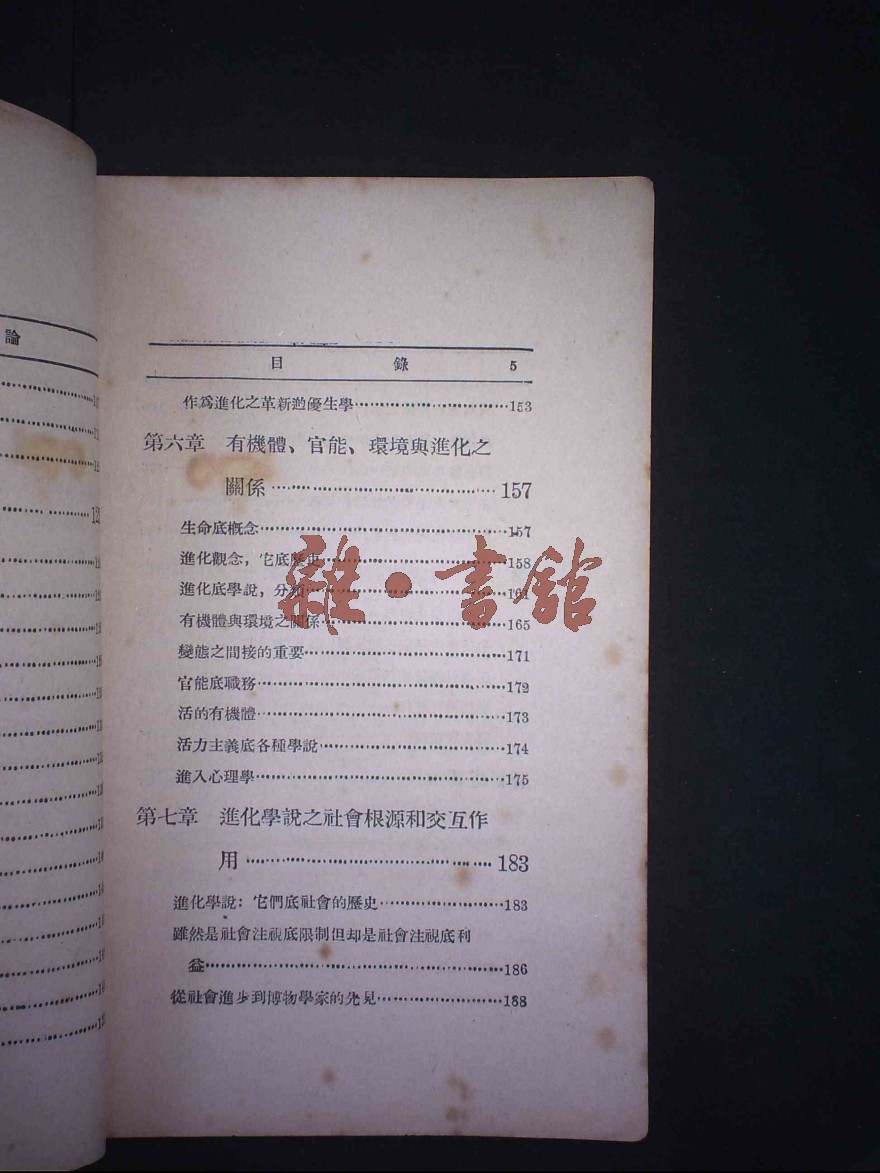 論
目 錄 5
作爲進化之革新逈優生學……153
第六章 有機體、官能、環境與進化之
關係……157
生命底概念……157
進化觀念，它底歷史……158
進化底學說，分類……161
有機體與環境之關係……165
變態之間接的重要……171
官能底職務……172
活的有機體……173
活力主義底各種學說……174
進入心理學……175
第七章 進化學說之社會根源和交互作
用……183
進化學說：它們底社會的歷史……183
雖然是社會注視底限制但却是社會注視底利
益……186
從社會進步到博物學家的先見……188
雜·書舘